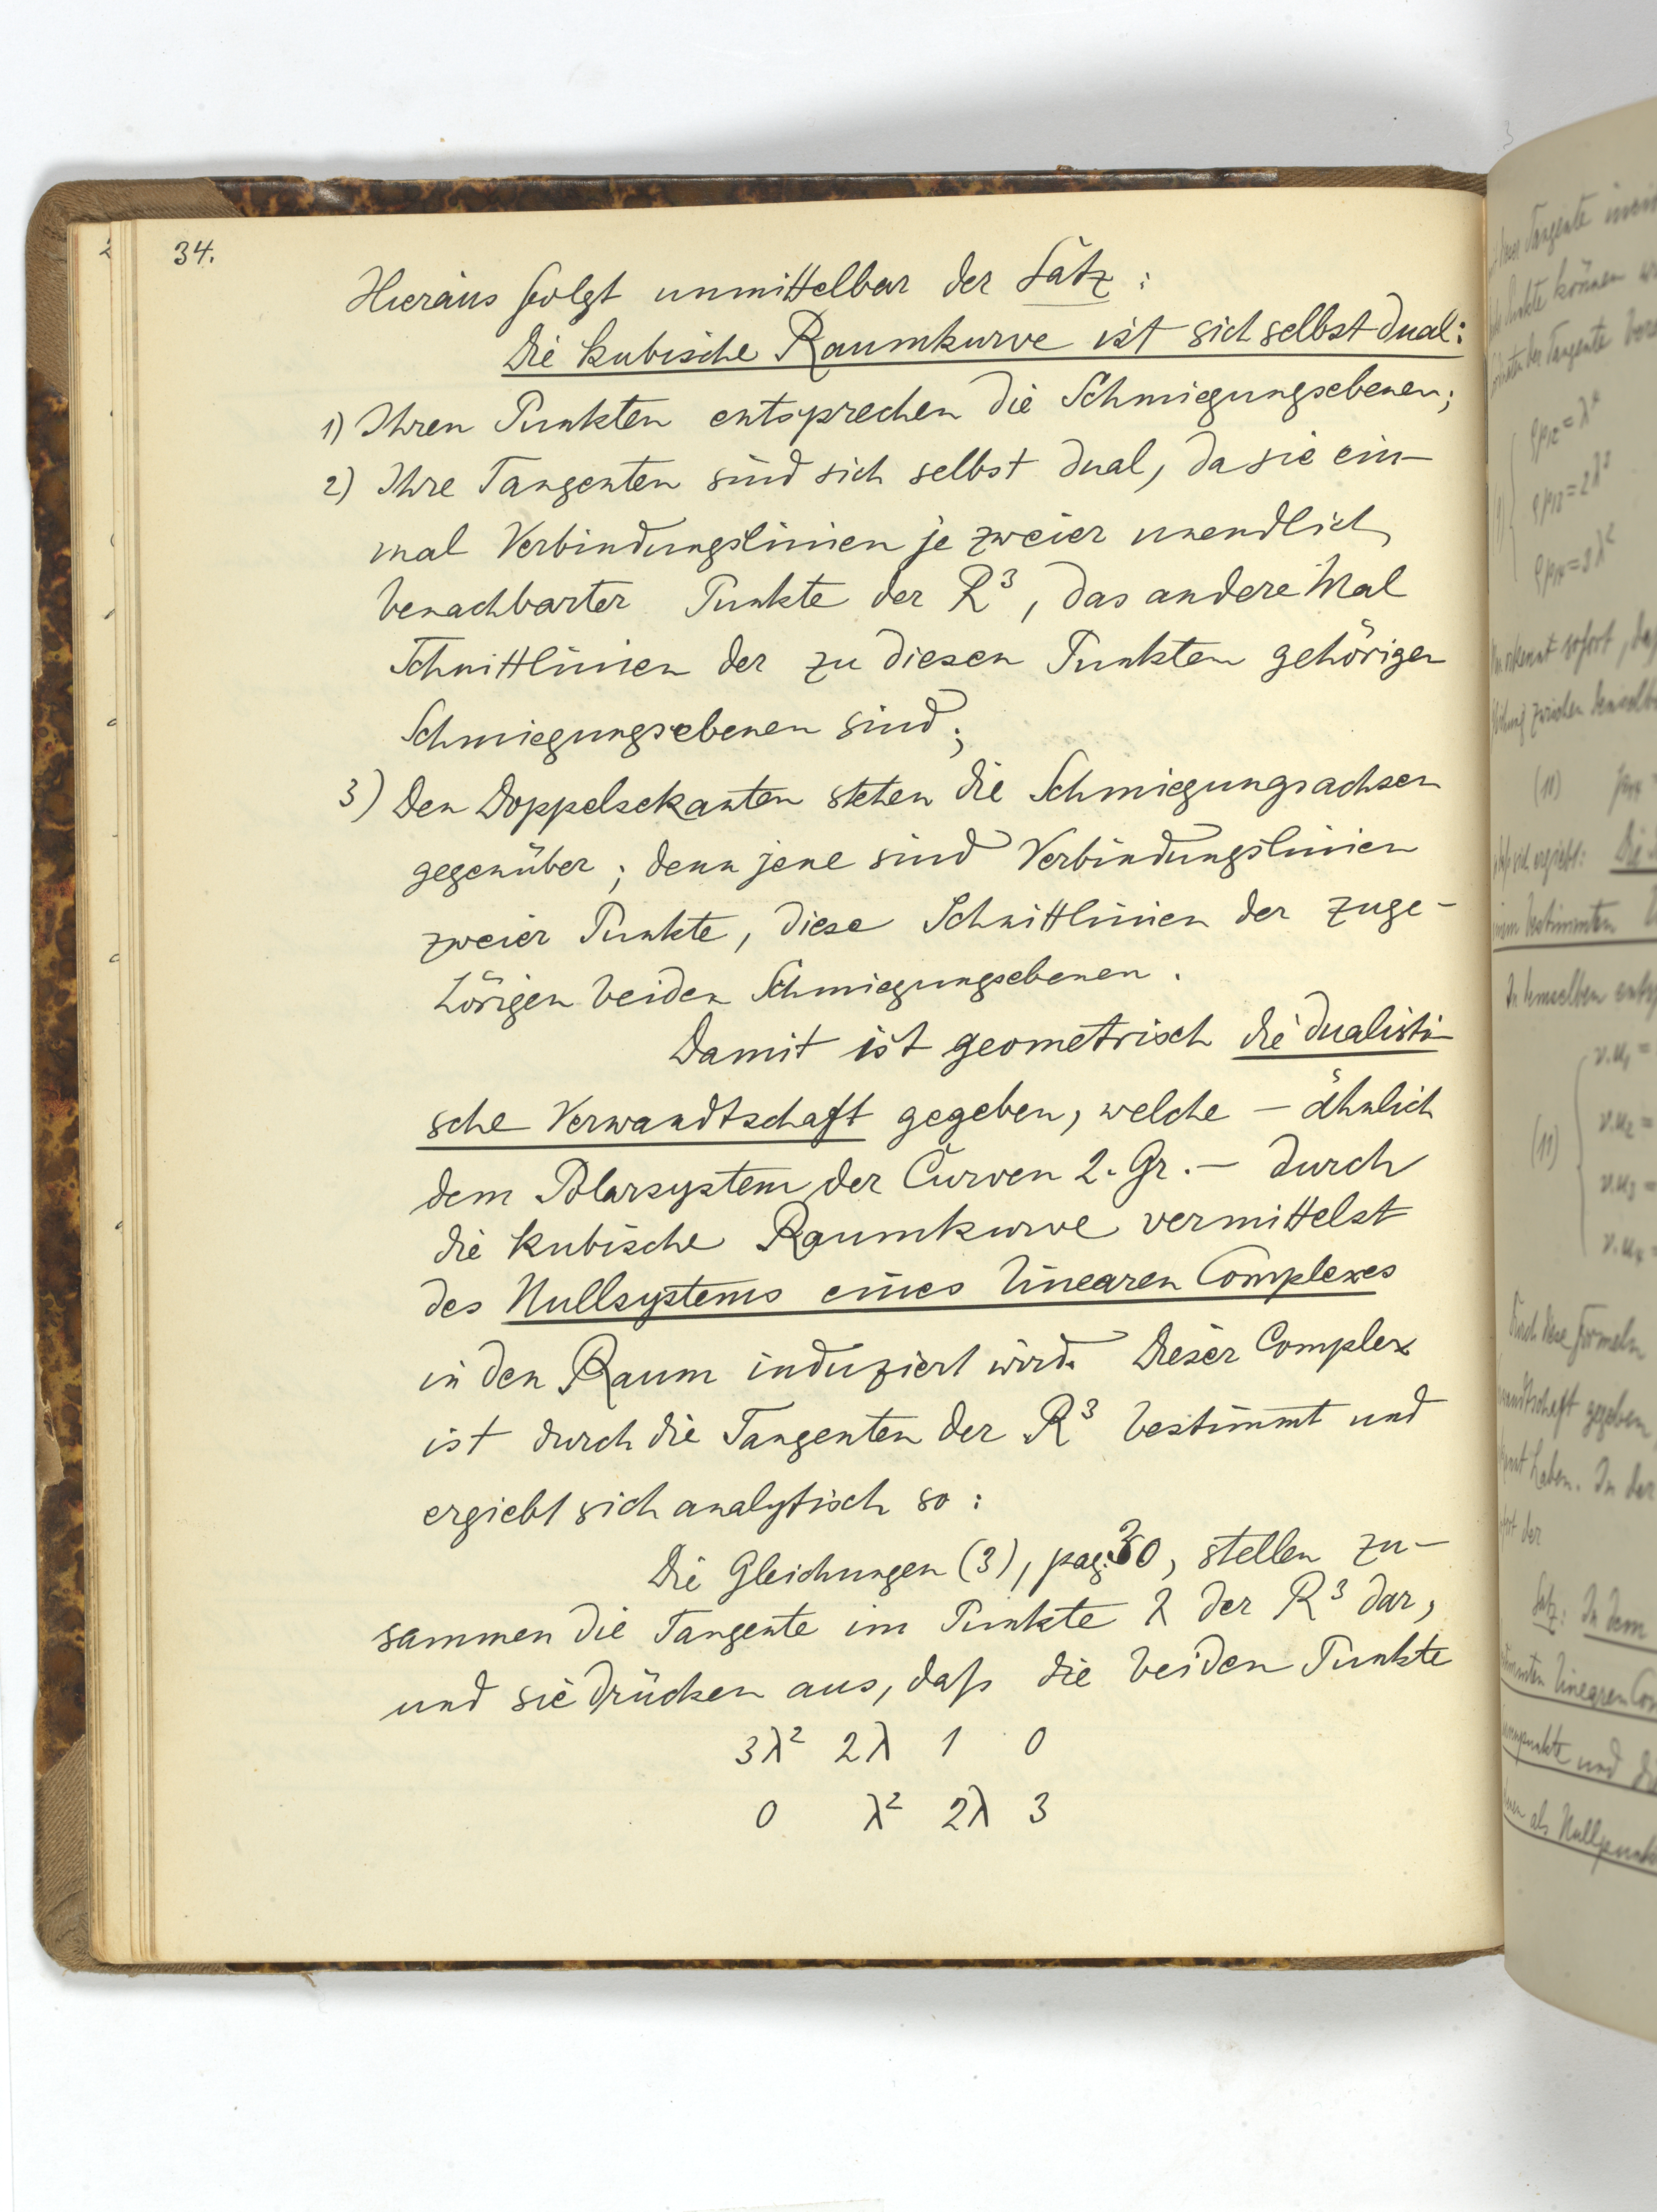 34.
Hieraus folgt unmittelbar der Satz:
Die kubische Raumkurve ist sich selbst dual:
1) Ihren Punkten entsprechen die Schmiegungsebenen;
2) Ihre Tangenten sind sich selbst dual, da sie ein-
mal Verbindungslinien je zweier unendlich
benachbarter Punkte der R³, das andere Mal
Schnittlinien der zu diesen Punkten gehörigen
Schmiegungsebenen sind;
3) Den Doppelsekanten stehen die Schmiegungsachsen
gegenüber; denn jene sind Verbindungslinien
zweier Punkte, diese Schnittlinien der zuge-
hörigen beiden Schmiegungsebenen.
Damit ist geometrisch die dualisti-
sche Verwandtschaft gegeben, welche – ähnlich
dem Polarsystem der Curven 2. Gr. – durch
die kubische Raumkurve vermittelst
des Nullsystems eines linearen Complexes
in den Raum induziert wird. Dieser Complex
ist durch die Tangenten der R³ bestimmt und
ergiebt sich analytisch so:
Die Gleichungen (3), pag. 30, stellen zu-
sammen die Tangente im Punkte λ der R³ dar,
und sie drücken aus, daß die beiden Punkte
3λ² 2λ 1 0
0 λ² 2λ 3
Tangente
Punkte können
der Tangente
ρp₁₃=2λ³
ρp₁₄=3λ²
erkennt sofort,
zwischen
(10)
sich ergiebt: Die
bestimmten
In demselben
v.u₁ =
v.u₂ =
(11)
v.u₃ =
v.u₄ =
Durch diese Formeln
gegeben,
haben. In der
der
Satz: In dem
linearen
und die
als